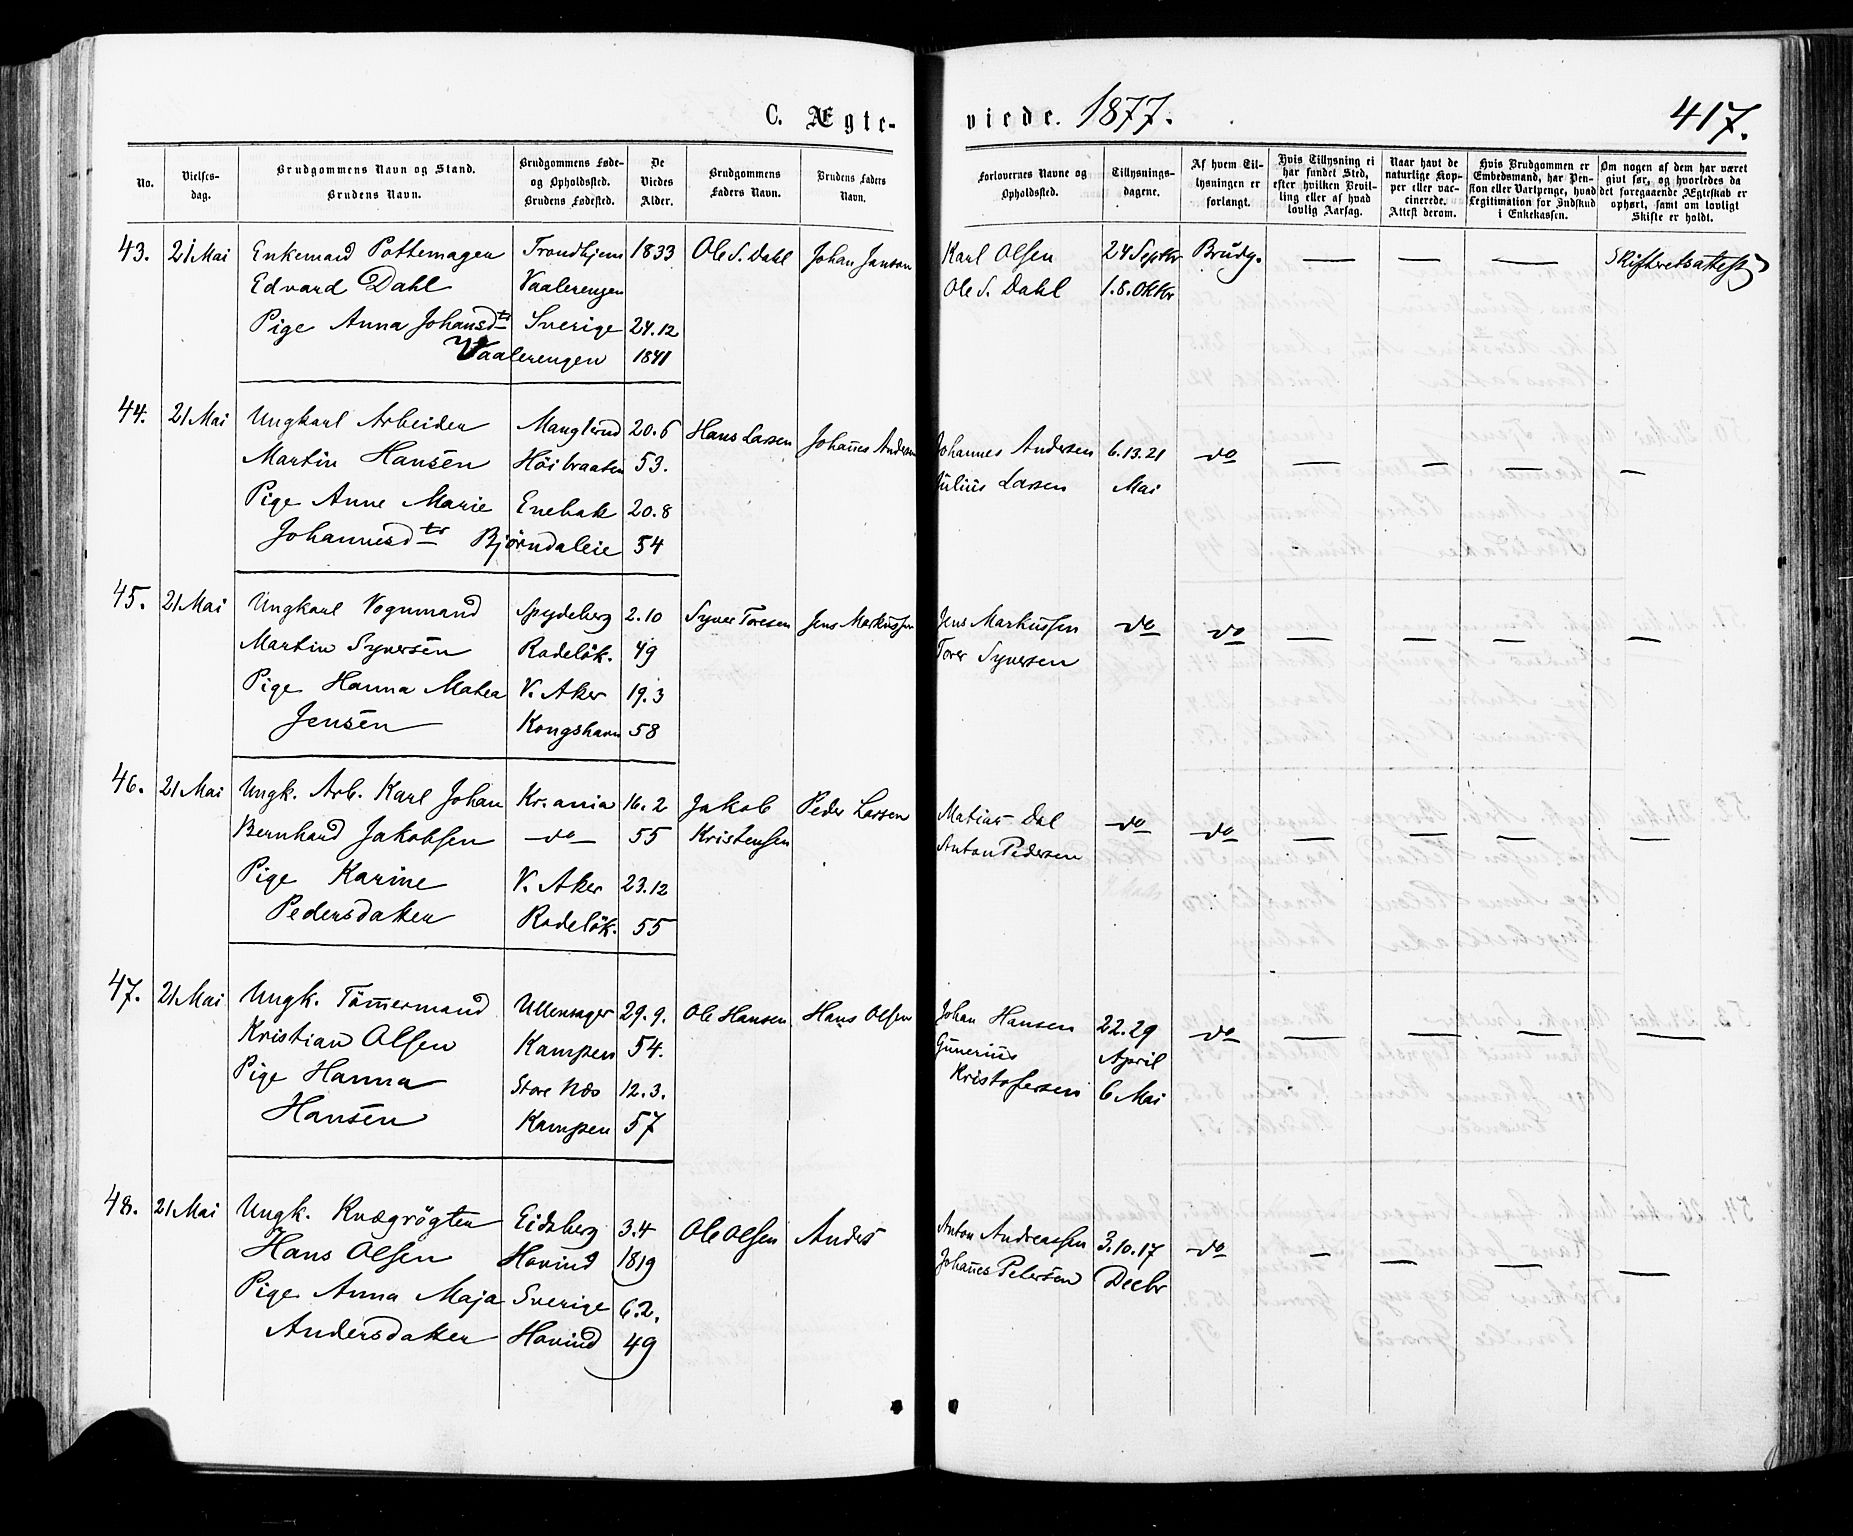 C. Ægte-
viede. 1877.
417.
No.
Vielses-
dag.
Brudgommens Navn og Stand.
Brudens Navn.
Brudgommens Føde-
og Opholdssted.
Brudens Fødested.
De
Viedes
Alder.
Brudgommens
Faders Navn.
Brudens Faders
Navn.
Forlovernes Navne og
Opholdssted.
Tillysnings-
dagene.
Af hvem Til-
lysningen er
forlangt.
Hvis Tillysning ei
har fundet Sted,
efter hvilken Bevil-
ling eller af hvad
lovlig Aarsag.
Naar havt de
naturlige Kop-
per eller vac-
cinerede.
Attest derom.
Hvis Brudgommen er
Embedsmand, har Pen-
sion eller Vartpenge, hvad
Legitimation for Indskud
i Enkekassen.
Om nogen af dem har været
givt før, og hvorledes da
det foregaaende Ægteskab er
ophørt, samt om lovligt
Skifte er holdt.
43. 21 Mai Enkemand Pottemager Trondhjem 1833 Ole S. Dahl Johan Janson Karl Olsen 24 Septbr Brudg. — — — Skifteretsattest
Edvard Dahl Vaalerengen Ole S. Dahl 1.8. Oktbr
Pige Anna Johansdtr Sverige 24.12
Vaalerengen 1841
44. 21 Mai Ungkarl Arbeider Manglerud 20.6 Hans Larsen Johan̄es Andersen Johannes Andersen 6.13.21 do — — — —
Martin Hansen Höibraaten 53. Julius Larsen Mai
Pige Anne Marie Enebak 20.8
Johannesdtr Bjørndaleie 54
45. 21 Mai Ungkarl Vognmand Spydeberg 2.10 Syver Toresen Jens Markussen Jens Markussen do do — — — —
Martin Syversen Rodelök. 49 Torer Syversen
Pige Hanna Matea V. Aker 19.3
Jensen Kongshavn 58
46. 21 Mai Ungk. Arb. Karl Johan Kr.ania 16.2 Jakob Peder Larsen Matias Dal do do — — — —
Bernhard Jakobsen — do — 55 Kristensen Anton Pedersen
Pige Karine V. Aker 23.12
Pedersdatter Rodelök. 55
47. 21 Mai Ungk. Töm̄ermand Ullensager 29.9. Ole Hansen Hans Olsen Johan Hansen 22.29 do — — — —
Kristian Olsen Kampen 54. Gunerius April
Pige Hanna Store Næs 12.3. Kristofersen 6 Mai
Hansen Kampen 57
48. 21 Mai Ungk. Kvægrögter Eidsberg 3.4 Ole Olsen Anders Anton Andreassen 3.10.17 do — — — —
Hans Olsen Hovind 1819 Johan̄es Petersen Decbr
Pige Anna Maja Sverige 6.2.
Andersdatter Hovind 49